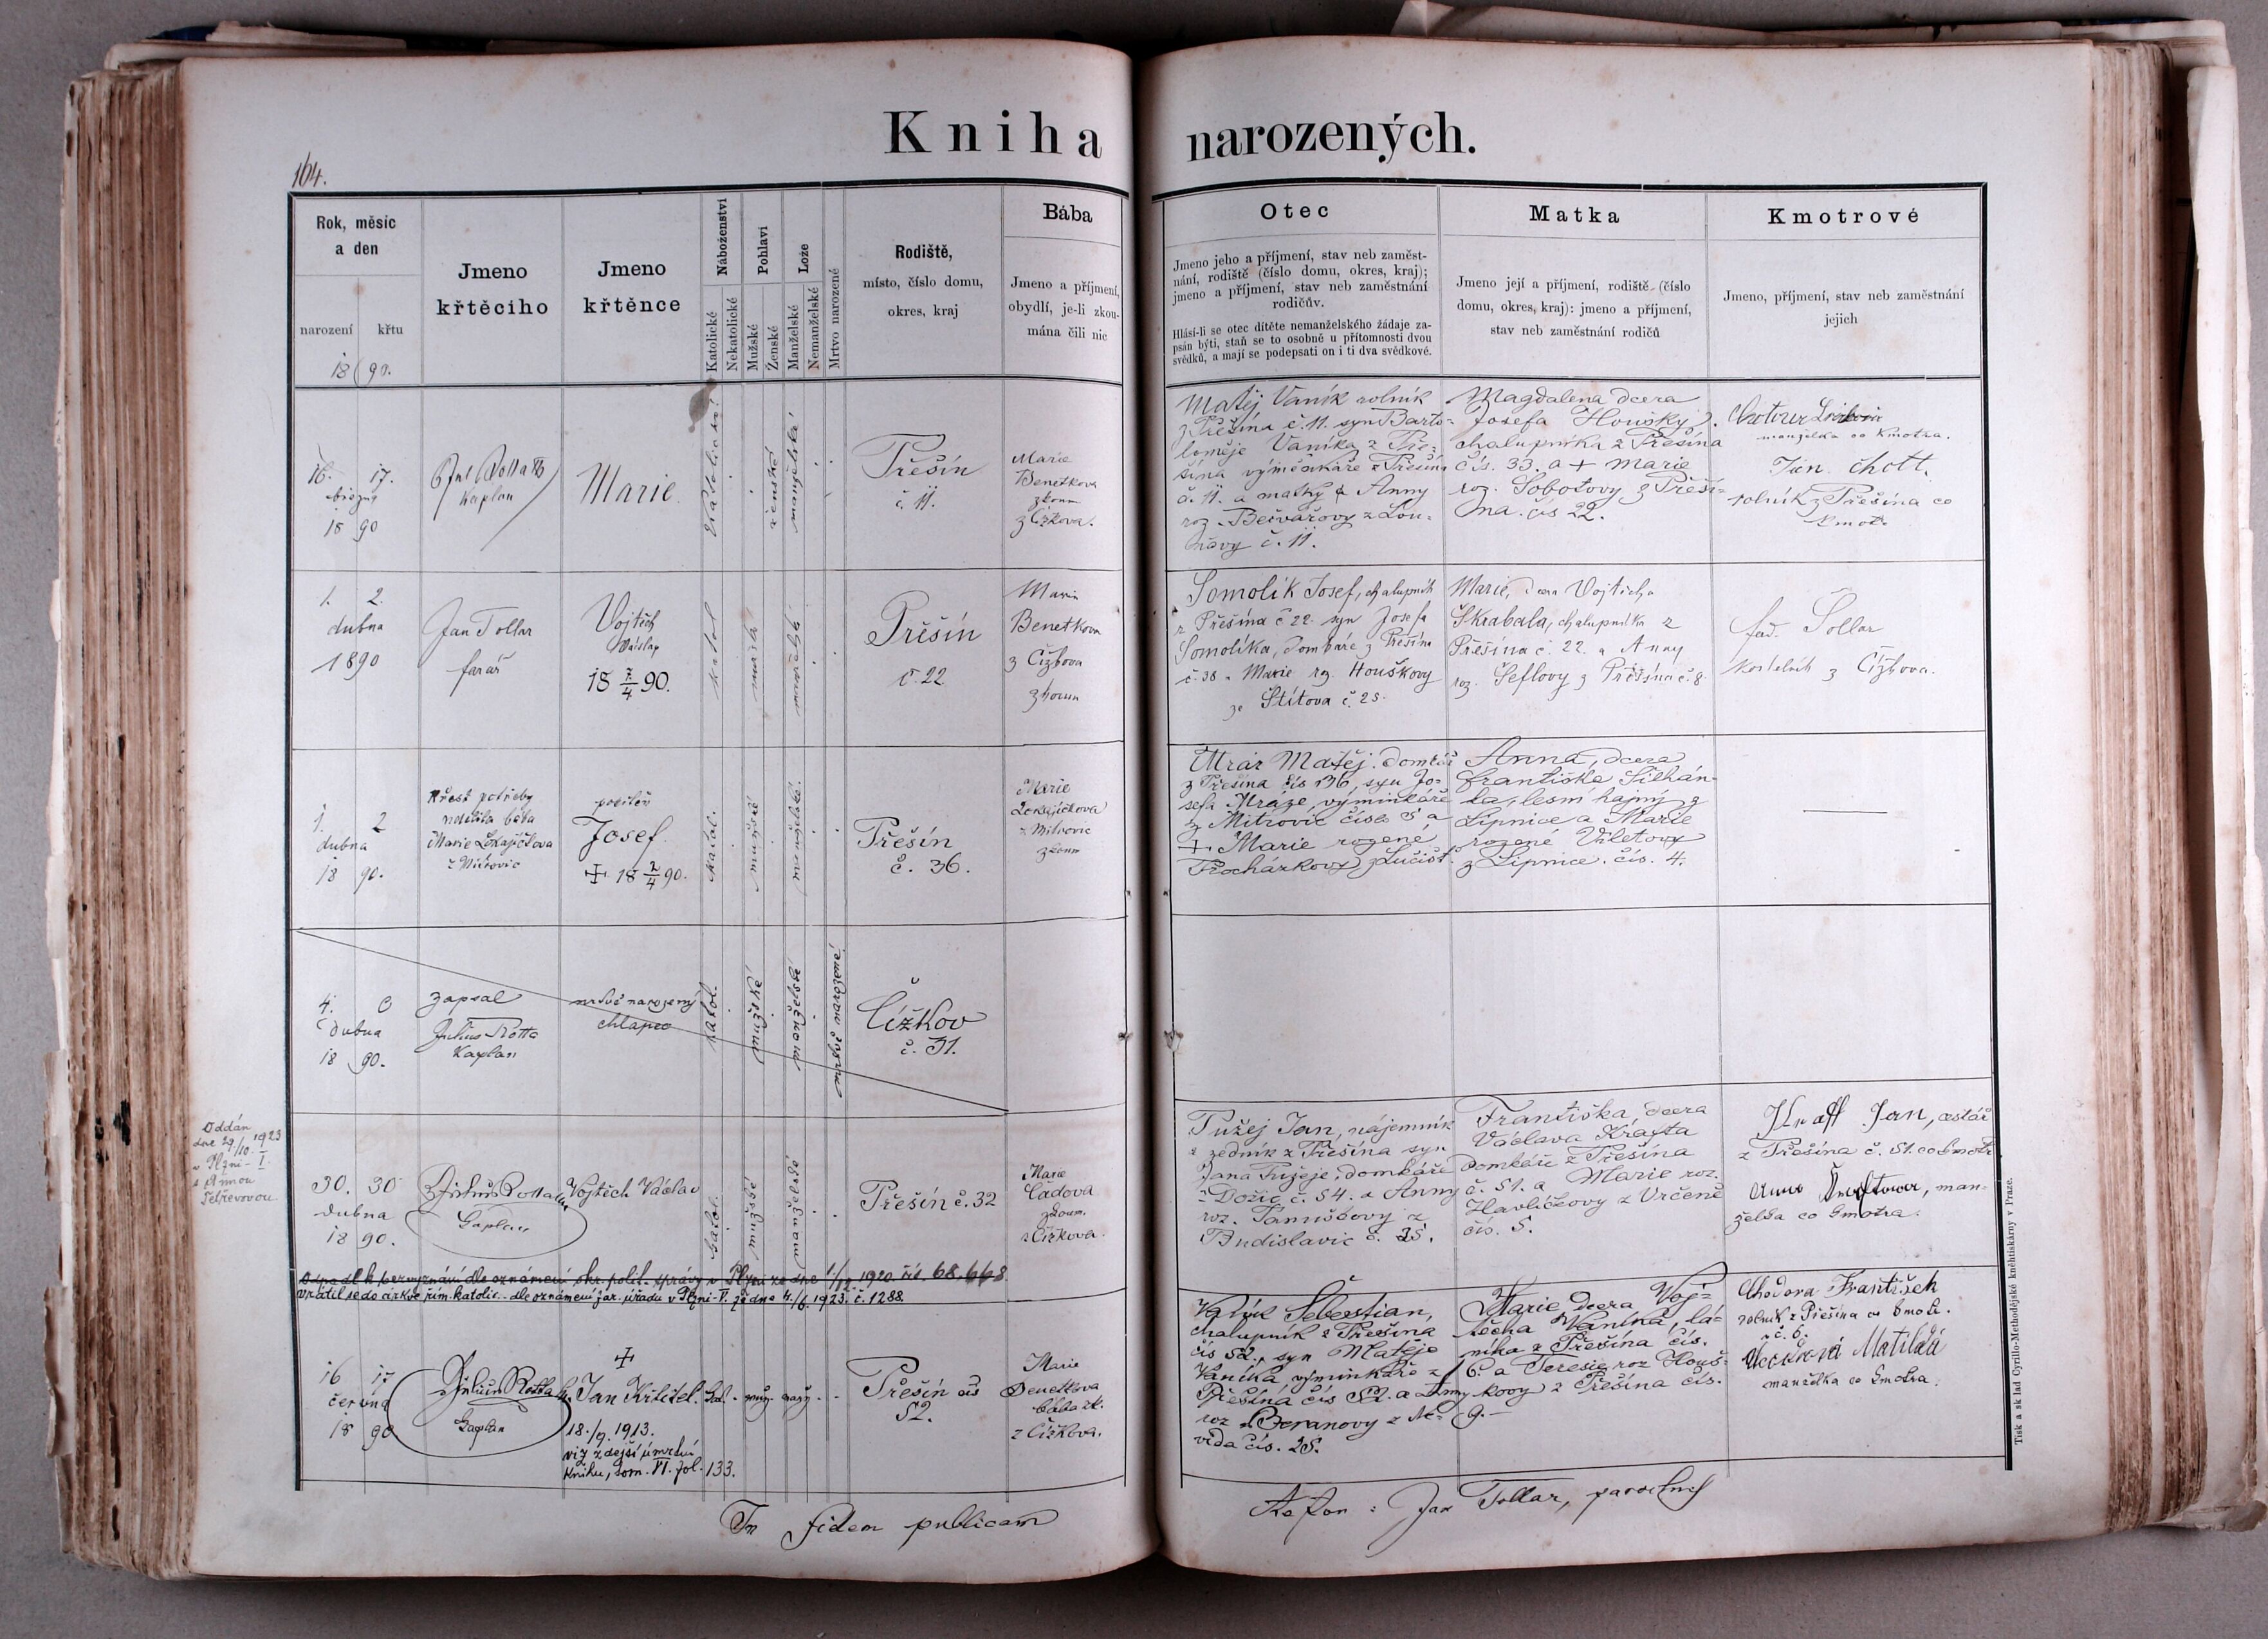 Kniha narozených.
164.
Rok, měsíc
a den
narození
křtu
18 90.
Jmeno
křtěcího
Jmeno
křtěnce
Náboženství
Katolické
Nekatolické
Pohlaví
Mužské
Ženské
Lože
Manželské
Nemanželské
Mrtvo narozené
Rodiště,
místo, číslo domu,
okres, kraj
Bába
Jmeno a příjmení,
obydlí, je-li zkou-
mána čili nic
Otec
Jmeno jeho a příjmení, stav neb zaměst-
nání, rodiště (číslo domu, okres, kraj);
jmeno a příjmení, stav neb zaměstnání
rodičův.
Hlásí-li se otec dítěte nemanželského žádaje za-
psán býti, staň se to osobně u přítomnosti dvou
svědků, a mají se podepsati on i ti dva svědkové.
Matka
Jmeno její a příjmení, rodiště (číslo
domu, okres, kraj): jmeno a příjmení,
stav neb zaměstnání rodičů
Kmotrové
Jmeno, příjmení, stav neb zaměstnání
jejich
16. 17.
března
18 90
Kaplan
Marie
ženské
manželské
Přešín
č. 11.
Marie
Benetkova
zkoum
z Čížkova.
Matěj Vaník rolník
z Přešína č. 11. syn Barto-
loměje Vaníka z Pře-
šína výměnkáře z Přešína
č. 11. a matky † Anny
roz. Bečvářovy z Lou-
ňovy č. 11.
Magdalena dcera
Josefa Houšky
chalupníka z Přešína
čís. 33. a + Marie
roz. Sobotovy z Přeší-
na. čís 22.
manželka co kmotra.
Jan Chott.
rolník z Přešína co
kmotr
1. 2.
dubna
1890
Jan Tollar
farář
Vojtěch
18 7/4 90.
katol
Přešín
č. 22
Marie
Benetkova
z Čížkova
zkoum
Somolík Josef, chalupník
z Přešína č 22. syn Josefa
Somolíka, domkáře z Přešína
č. 38 a Marie roz. Houškovy
ze Štítova č. 28.
Marie, dcera Vojtěcha
Škrabala, chalupníka z
Přešína č. 22. a Anny
roz. Šeflovy z Přešína č. 8
kostelník z Čížkova.
1. 2
dubna
18 90.
Křest potřeby
udělila bába
Marie Lokajíčkova
z Mitrovic
Josef.
+ 18 2/4 90.
katol.
mužské
manželské
Přešín
č. 36.
Marie
Lokajíčkova
z Mitrovic
zkoum
Mráz Matěj. domkář
z Přešína čís 36, syn Jo-
sefa Mráze, výminkáře
z Mitrovic číslo 5 a
+ Marie rozené
Procházkovy z Lučišt.
Anna, dcera
Františka Silhán-
ka, lesní hajný z
Lipnice a Marie
rozené Viletovy
z Lipnice. čís. 4.
4. 0
Dubna
18 90.
zapsal
Julius Rotta
Kaplan
mrtvě narozený
chlapec
katol.
mužské
manželské
mrtvě narozené
Čížkov
č. 31.
Oddán
dne 29/10. 1923
v Plzni - I.
s Annou
Petřevovou
30. 30
dubna
18 90.
Julius Rotta
Kaplan
Vojtěch Václav
katol.
mužské
manželské
Přešín č. 32
Marie
Čadova
zkoum.
z Čížkova.
Pužej Jan, nájemník
a zedník z Přešína syn
Jana Pužeje, domkáře
z Dožic č. 54. a Anny
roz. Tanuškovy z
Budislavic č. 25.
Františka, dcera
Václava Krafta
domkáře z Přešína
č. 51. a Marie roz.
Havlíčkovy z Vrčeně
čís. 5.
Kraft Jan, cestář
z Přešína č. 51. co kmotr
Anna Kraftova, man-
želka co kmotra.
Odpadl k bezvyznání dle oznámení okr. polit. správy v Plzni ze dne 1/12 1920 čís. 68.668
Vrátil se do církve řím. katolic. - dle oznámení far. úřadu v Plzni-V. ze dne 4./6. 1923. č. 1288.
16 17
června
18 90
Julius Rotta
Kaplan
+
Jan Křtitel.
18./9. 1913.
viz zdejší úmrtní
knihu, tom. VI. fol. 133.
Přešín čís
52.
Marie
Benetkova
bába zk.
z Čížkova.
Vaník Šebestian,
chalupník z Přešína
čís 52., syn Matěje
Vaníka, výminkáře z
Přešína čís 52. a Anny
roz. Beranovy z Ne-
vida čís. 25.
Marie dcera Voj-
těcha Vaníka, lá-
níka z Přešína čís.
6. a Teresie roz Houš-
kovy z Přešína čís.
9.-
Chodora František
rolník z Přešína co kmotr.
z č. 6.
Matilda
manželka co kmotra.
In fidem publicam
Jan Tollar,
Tisk a sklad Cyrillo-Methodějské knihtiskárny v Praze.